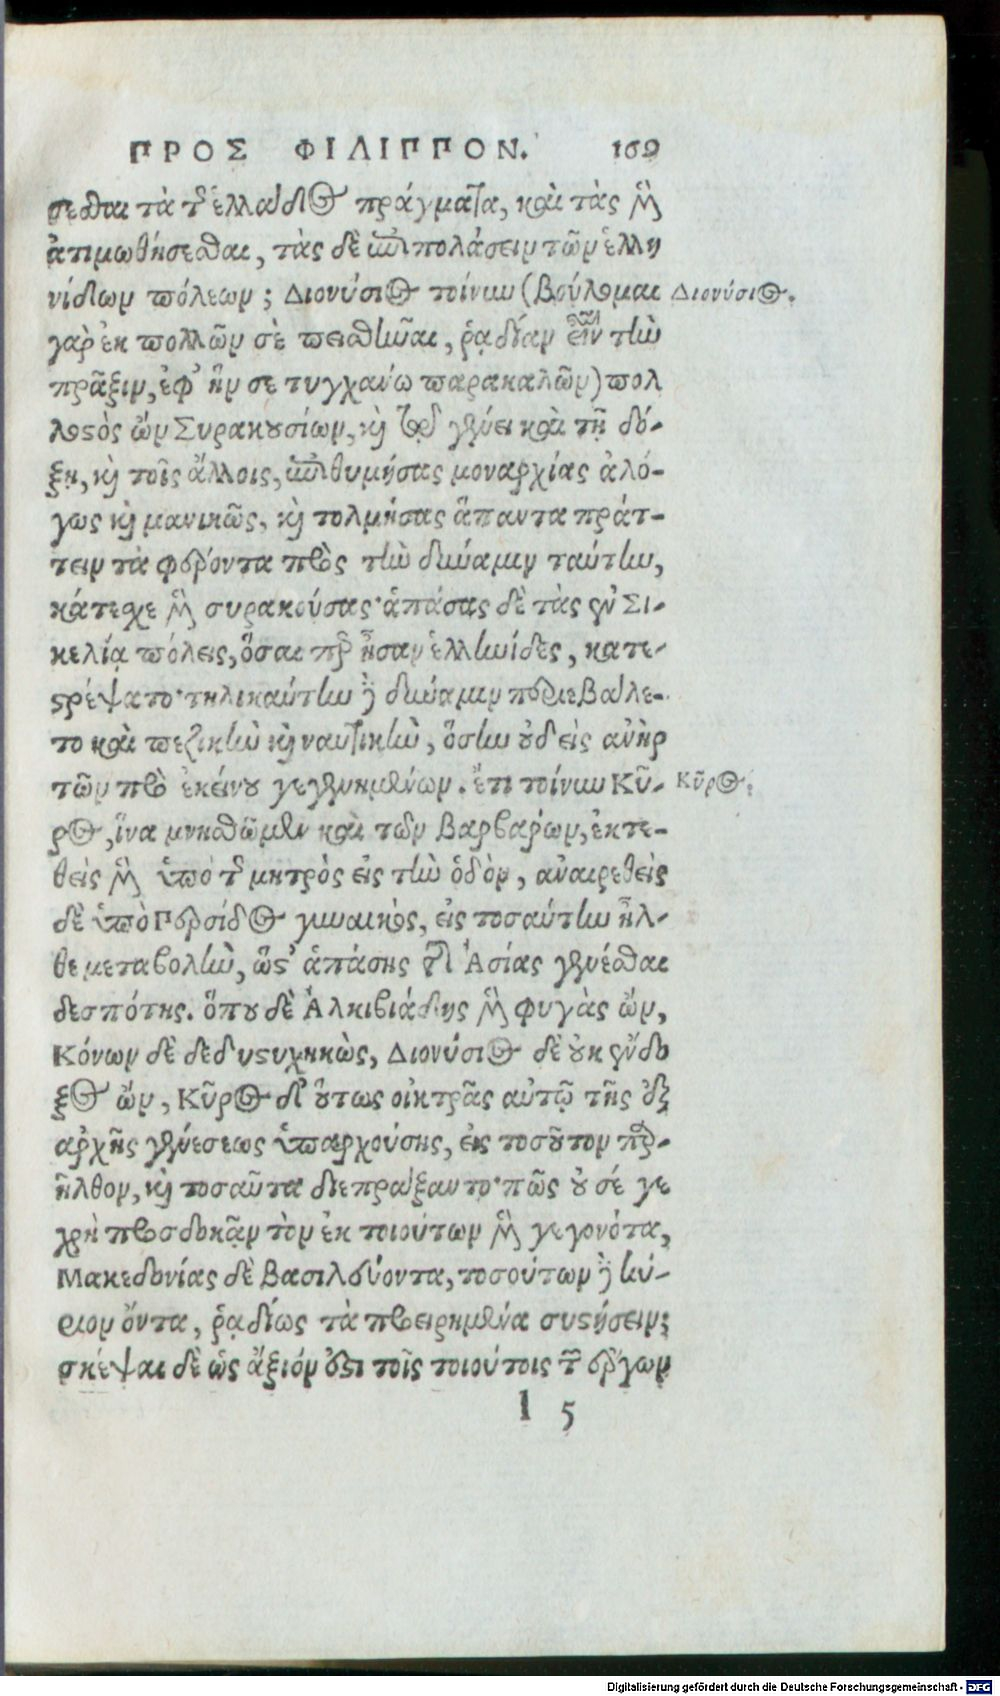 ΠΡΟΣ ΦΙΛΙΠΠΟΝ. 169
σεσθαι τὰ τῆς ἑλλάδος πράγματα, καὶ τὰς μὲν
ἀτιμωθήσεσθαι, τὰς δὲ ἐπιπολάσειν τῶν ἑλλη
νίδων πόλεων; Διονύσιος τοίνυν (βούλομαι
Διονύσιος.
γὰρ ἐκ πολλῶν σὲ πεισθῆναι, ῥᾳδίαν εἶναι τὴν
πρᾶξιν, ἐφ' ἣν σε τυγχάνω παρακαλῶν) πολ
λοστὸς ὢν Συρακουσίων, καὶ τῷ γένει καὶ τῇ δό-
ξῃ, καὶ τοῖς ἄλλοις, ἐπιθυμήσας μοναρχίας ἀλό-
γως καὶ μανικῶς, καὶ τολμήσας ἅπαντα πράτ-
τειν τὰ φέροντα πρὸς τὴν δύναμιν ταύτην,
κάτεσχε μὲν συρακούσας· ἁπάσας δὲ τὰς ἐν Σι-
κελίᾳ πόλεις, ὅσαι περ ἦσαν ἑλληνίδες, κατε-
στρέψατο· τηλικαύτην δὲ δύναμιν περιεβάλε-
το καὶ πεζικὴν καὶ ναυτικὴν, ὅσην οὐδεὶς ἀνὴρ
τῶν πρὸ ἐκείνου γεγενημένων. ἔτι τοίνυν Κῦ-
Κῦρος.
ρος, ἵνα μνησθῶμεν καὶ τῶν βαρβάρων, ἐκτε-
θεὶς μὲν ὑπὸ τῆς μητρὸς εἰς τὴν ὁδὸν, ἀναιρεθεὶς
δὲ ὑπὸ Περσίδος γυναικὸς, εἰς τοσαύτην ἦλ-
θε μεταβολὴν, ὥστ' ἁπάσης τῆς Ἀσίας γενέσθαι
δεσπότης. ὅπου δὲ Ἀλκιβιάδης μὲν φυγὰς ὢν,
Κόνων δὲ δεδυστυχηκὼς, Διονύσιος δὲ οὐκ ἔνδο
ξος ὢν, Κῦρος δ' οὕτως οἰκτρᾶς αὐτῷ τῆς ἐξ
ἀρχῆς γενέσεως ὑπαρχούσης, εἰς τοσοῦτον προ-
ῆλθον, καὶ τοσαῦτα διεπράξαντο· πῶς οὐ σέ γε
χρὴ προσδοκᾷν τὸν ἐκ τοιούτων μὲν γεγονότα,
Μακεδονίας δὲ βασιλεύοντα, τοσούτων δὲ κύ-
ριον ὄντα, ῥᾳδίως τὰ προειρημένα συστήσειν;
σκέψαι δὲ ὡς ἄξιόν ἐστι τοῖς τοιούτοις τῶν ἔργων
l 5
Digitalisierung gefördert durch die Deutsche Forschungsgemeinschaft - DFG